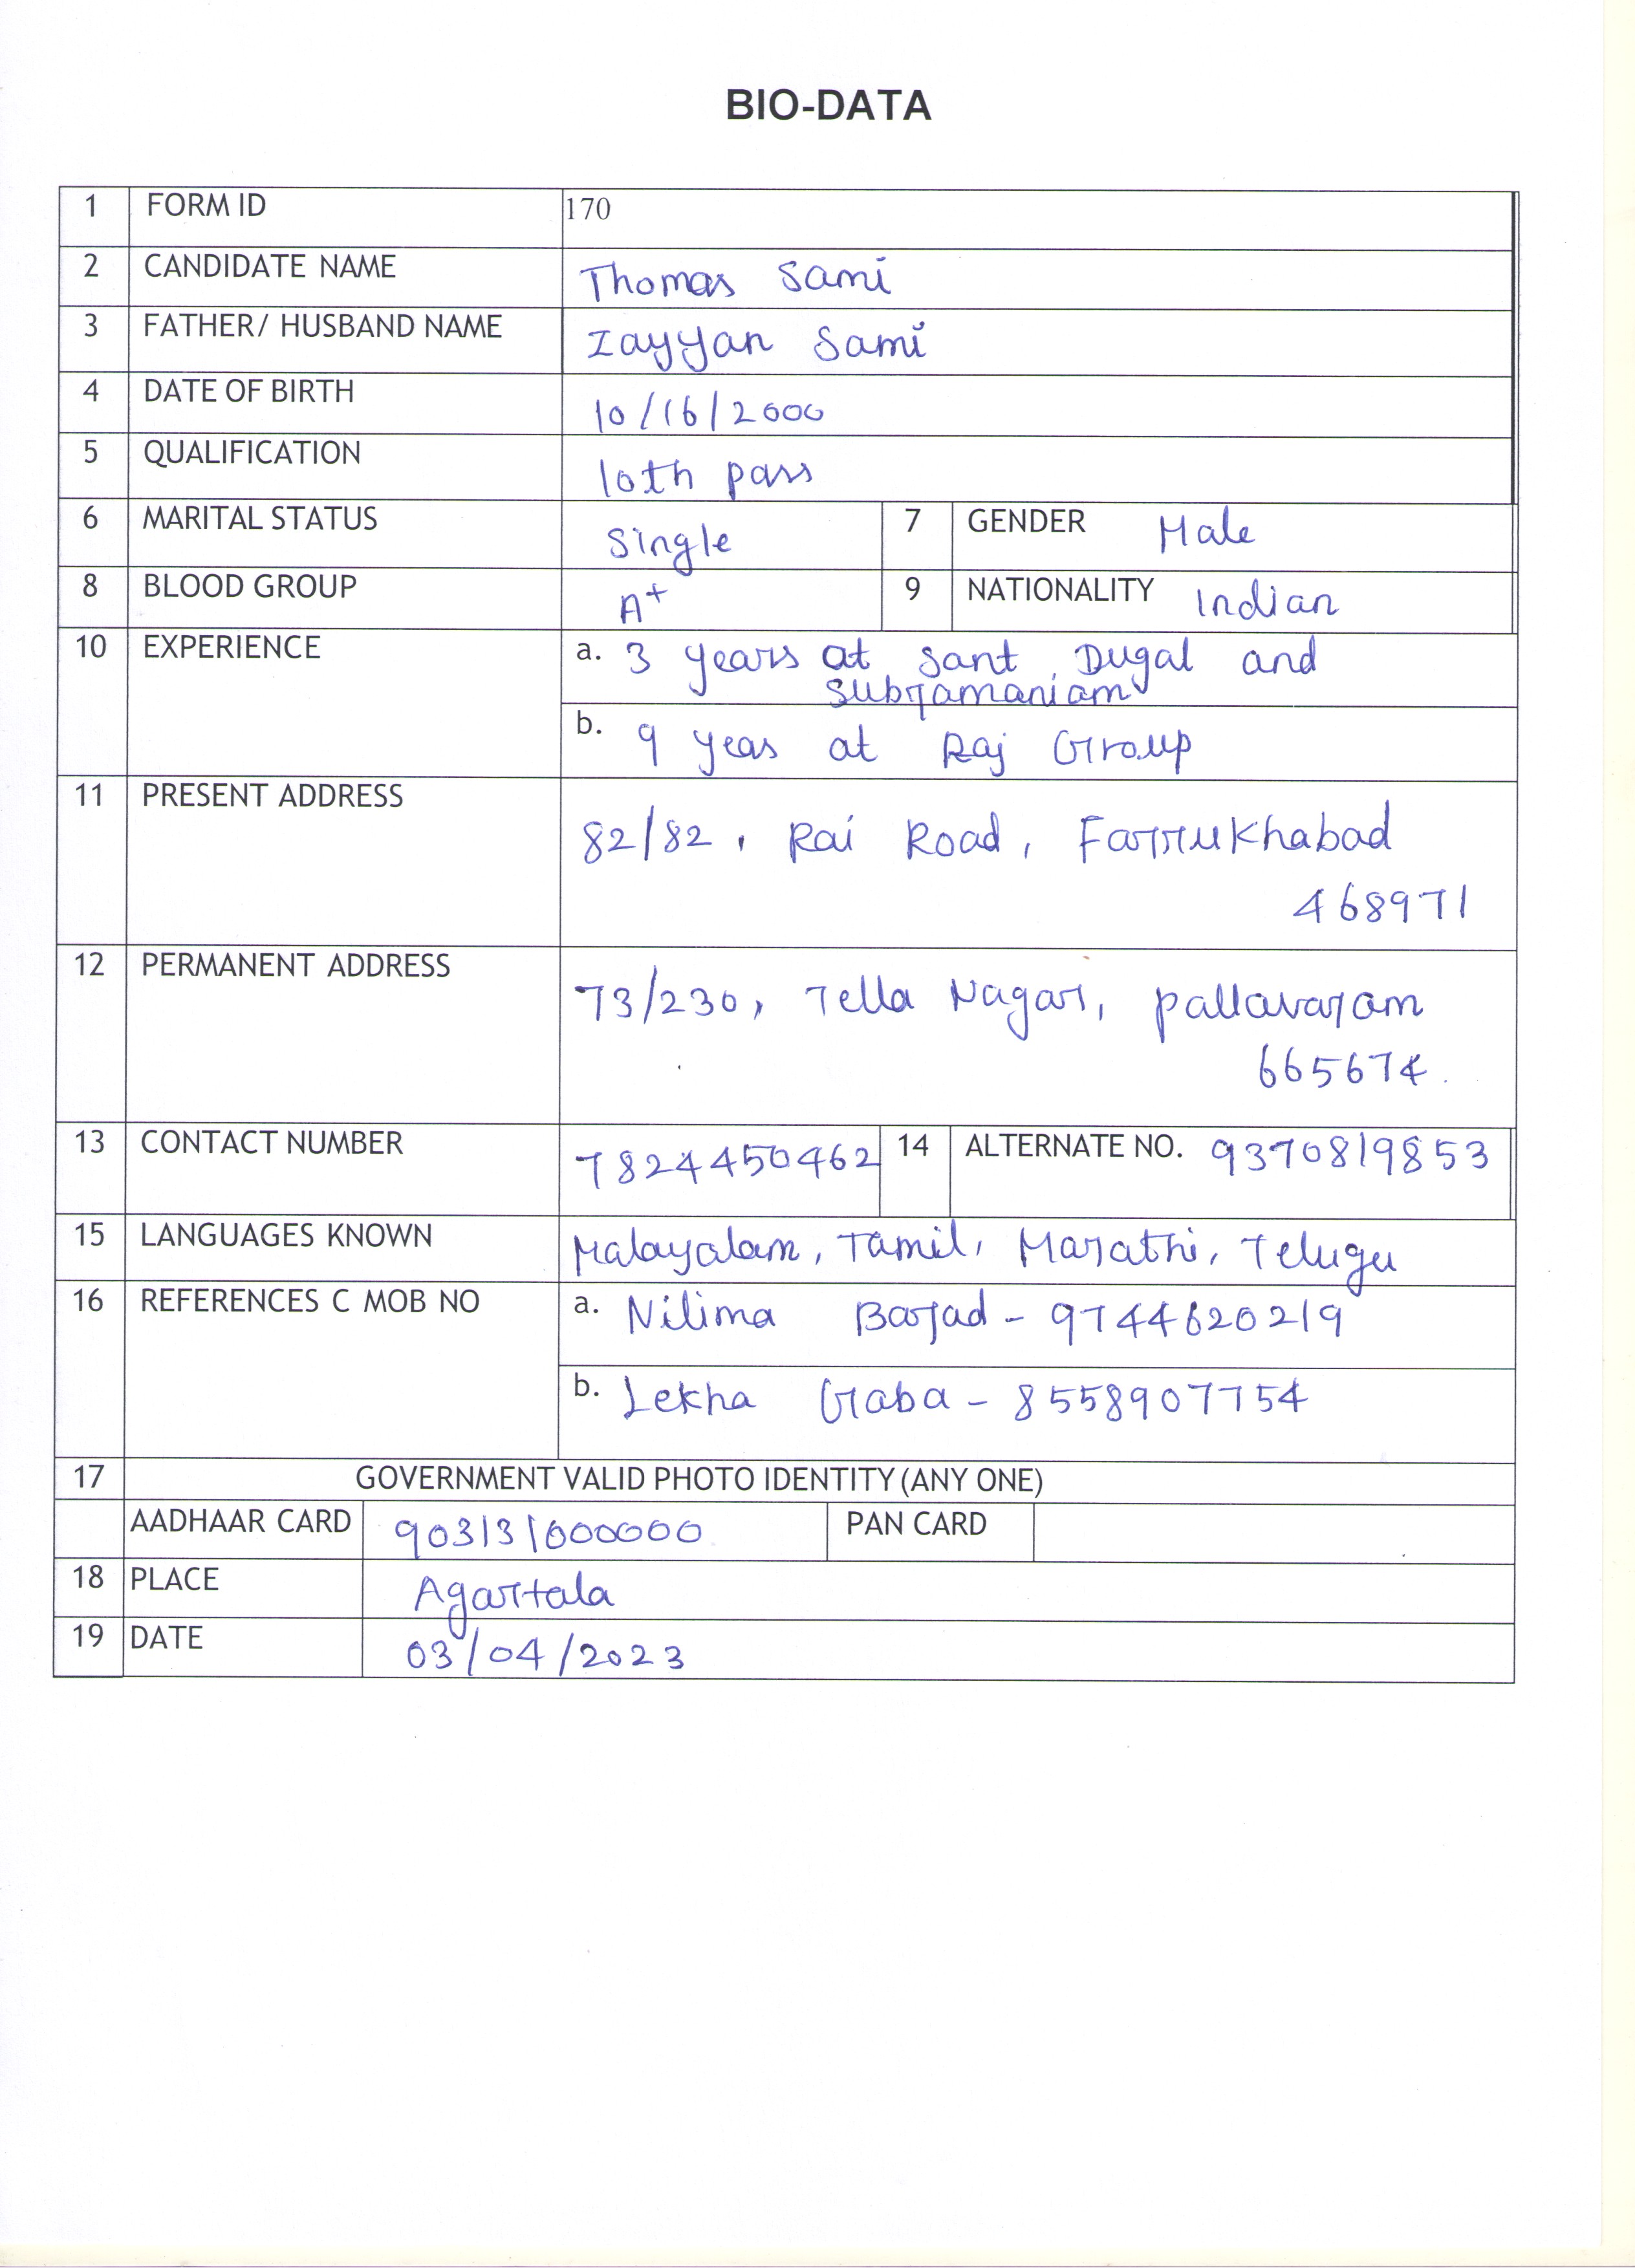 BIO-DATA
1 FORM ID 170
2 CANDIDATE NAME Thomas Sami
3 FATHER/ HUSBAND NAME Zayyan Sami
4 DATE OF BIRTH 10/16/2000
5 QUALIFICATION 10th pass
6 MARITAL STATUS Single 7 GENDER Male
8 BLOOD GROUP A+ 9 NATIONALITY Indian
10 EXPERIENCE a. 3 years at Sant, Dugal and
Subramaniam
b. 9 yeas at Raj Group
11 PRESENT ADDRESS
82/82, Rai Road, Farrukhabad
468971
12 PERMANENT ADDRESS
73/230, Tella Nagar, Pallavaram
665674.
13 CONTACT NUMBER 7824450462 14 ALTERNATE NO. 9370819853
15 LANGUAGES KNOWN Malayalam, Tamil, Marathi, Telugu
16 REFERENCES C MOB NO a. Nilima Barad - 9744620219
b. Lekha Gaba - 8558907754
17 GOVERNMENT VALID PHOTO IDENTITY (ANY ONE)
AADHAAR CARD 903131000000 PAN CARD
18 PLACE Agartala
19 DATE 03/04/2023